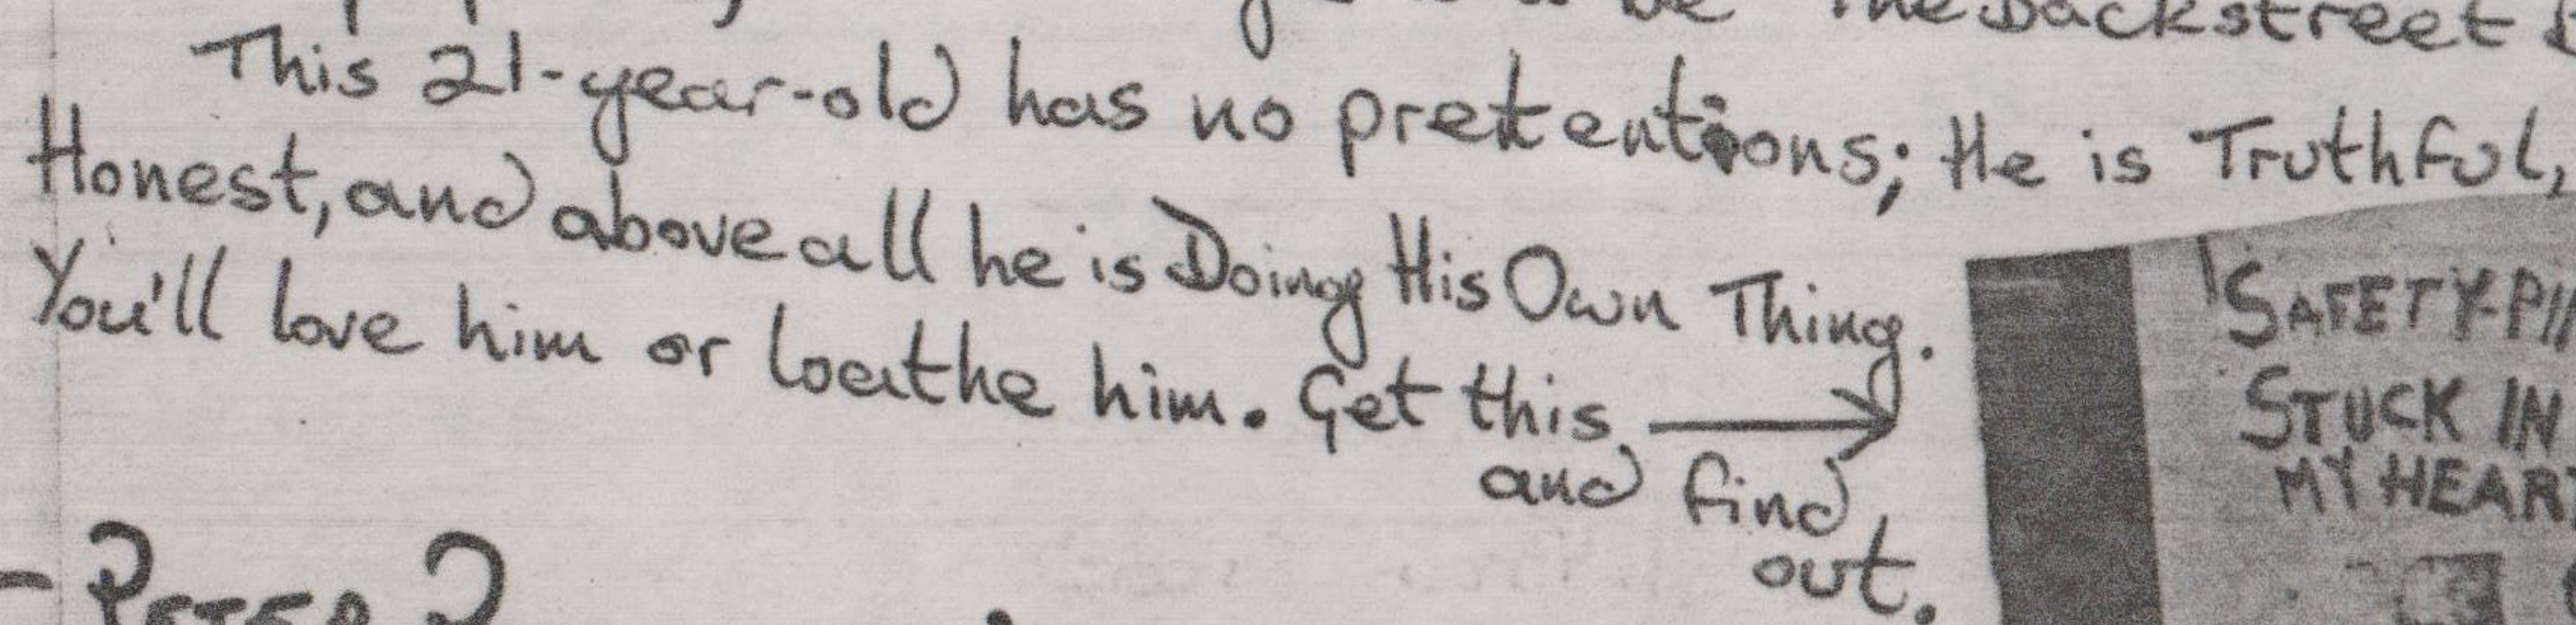 be The Backstreet
This 21-year-old has no pretentions; He is Truthful,
Honest, and above all he is Doing His Own Thing.
You'll love him or loathe him. Get this →
and find
out.
SAFETY-PI
STUCK IN
MY HEAR
- PETER?